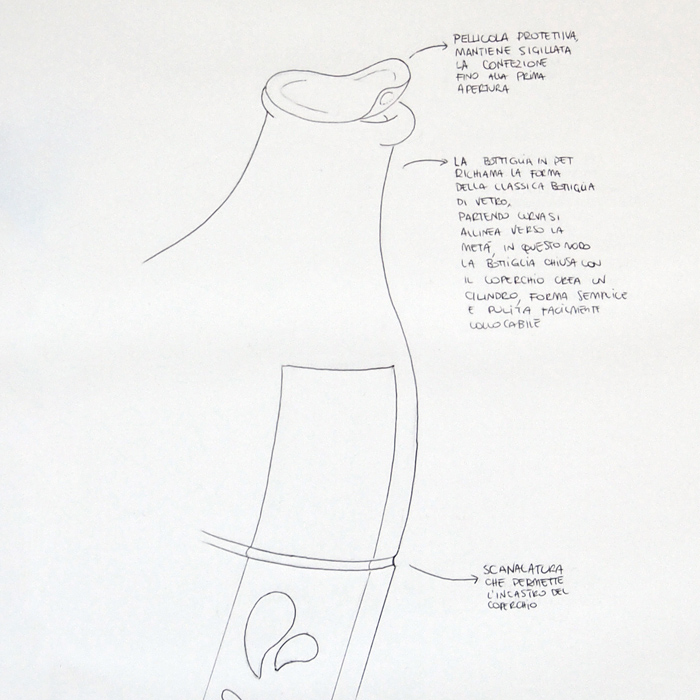 PELLICOLA PROTETTIVA,
MANTIENE SIGILLATA
LA CONFEZIONE
FINO ALLA PRIMA
APERTURA
LA BOTTIGLIA IN PET
RICHIAMA LA FORMA
DELLA CLASSICA BOTTIGLIA
DI VETRO,
PARTENDO CURVA SI
ALLINEA VERSO LA
METÀ, IN QUESTO MODO
LA BOTTIGLIA CHIUSA CON
IL COPERCHIO CREA UN
CILINDRO, FORMA SEMPLICE
E PULITA FACILMENTE
COLLOCABILE
SCANALATURA
CHE PERMETTE
L'INCASTRO DEL
COPERCHIO